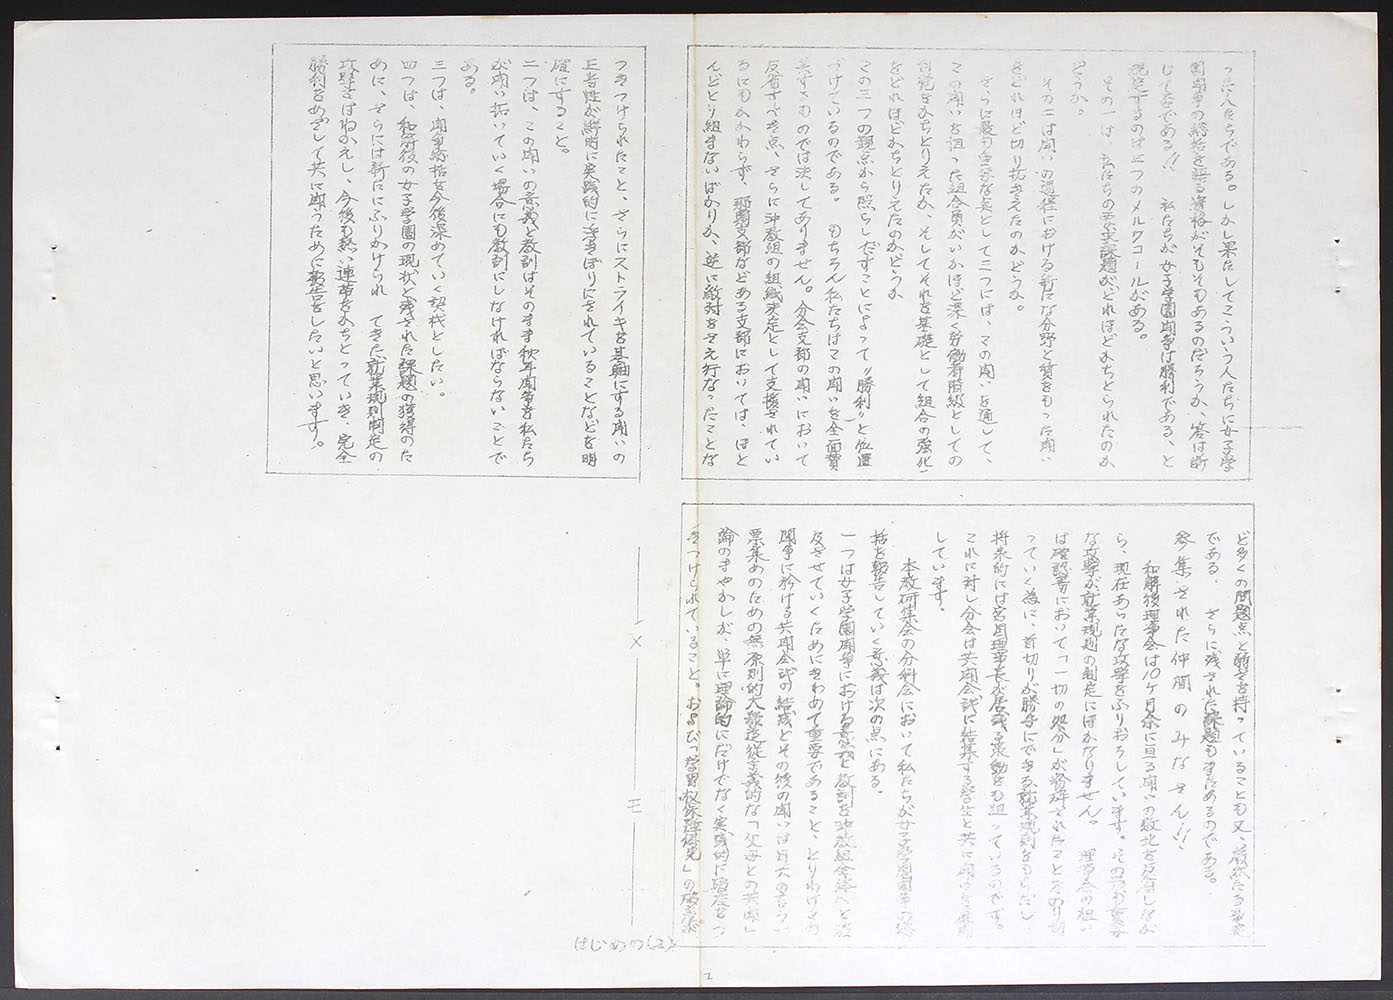 った人たちである。しかし果たしてこういう人たちに女子学
園闘争の総括を語る資格がそもそもあるのだろうか、答は断
じて否である!! 私たちが女子学園闘争は勝利である、と
規定するのは三つのメルクコールがある。
その一は、私たちの要求課題がどれほどかちとられたのか
どうか。
その二は闘いの過程における新たな分野と質をもった闘い
をどれほど切り拓きえたのかどうか。
さらに最も重要な点として三つには、この闘いを通して、
この闘いを担った組合員がいかほど深く労働者階級としての
自覚をかちとりえたか、そしてそれを基礎として組合の強化
をどれほどかちとりえたのかどうか
この三つの観点から照らしだすことによって〝勝利〟と位置
づけているのである。 もちろん私たちはこの闘いを全面賛
美するものでは決してありません。分会支部の闘いにおいて
反省すべき点、さらに沖教組の組織決定として支援されてい
るにもかかわらず、那覇支部などある支部においては、ほと
んどとり組まないばかりか、逆に敵対をさえ行なったことな
ど多くの問題点と弱さを持っていることも又、厳然たる事実
である。 さらに残された課題もまだあるのである。
参集された仲間のみなさん!!
和解後理事会は10ケ月余に亘る闘いの敗北を反省しなが
ら、現在あらたな攻撃をふりおろしています。その最も重要
な攻撃が就業規則の制定にほかなりません。 理事会の狙い
は確認書において「一切の処分」が解消されたことをのり切
っていく為に、首切りが勝手にできる就業規則をもちだし、
将来的には宮国理事長が居残る策動をも狙っているのです。
これに対し分会は共闘会議に結集する学生と共に闘いを展開
しています。
本教研集会の分科会において私たちが女子学園闘争の総
括を報告していく意義は次の点にある。
一つは女子学園闘争における意義と教訓を沖教組全体へと波
及させていくためにきわめて重要であること、とりわけこの
闘争に於ける共闘会議の結成とその後の闘いは日共の言う、
票集めのための無原則的大衆追従主義的な「父母との共闘」
論のまやかしが、単に理論的にだけでなく実践的に破産をつ
きつけられていること。および「学習権保障優先」の破産が
つきつけられたこと、さらにストライキを基軸にする闘いの
正当性が鮮明に実践的に浮きぼりにされていることなどを明
確にすること。
二つは、この闘いの意義と教訓はそのまま秋年闘争を私たち
が闘い拓いていく場合にも教訓にしなければならないことで
ある。
三つは、闘争総括を今後深めていく契機としたい。
四つは、和解後の女子学園の現状と残された課題の獲得のた
めに、さらには新たにふりかけられ てきた就業規則制定の
攻撃をはねかえし、今後も熱い連帯をかちとっていき、完全
勝利をめざして共に闘うために報告をしたいと思います。
メ モ
はじめの(2)
2